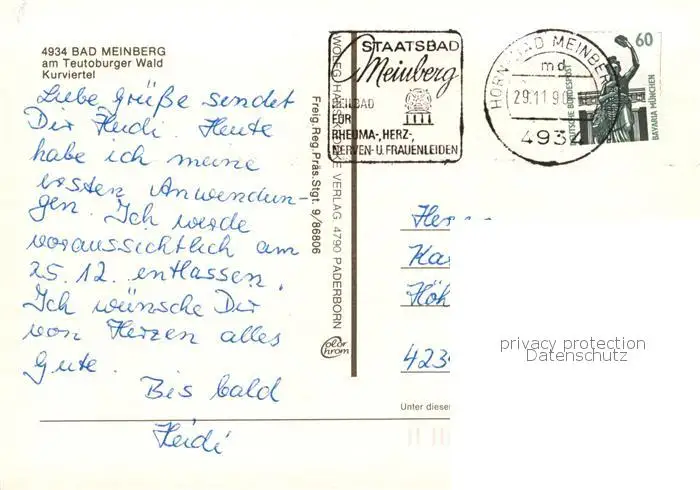 4934 BAD MEINBERG
am Teutoburger Wald
Kurviertel
Liebe Grüße sendet
Dir Heidi. Heute
habe ich meine
ersten Anwendun-
gen. Ich werde
voraussichtlich am
25.12. entlassen.
Ich wünsche Dir
von Herzen alles
Gute.
Bis bald
Heidi
Freig.Reg.Präs.Stgt. 9/86806
VERLAG, 4790 PADERBORN
color
chrom
STAATSBAD
Meinberg
HEILBAD
FÜR
RHEUMA-, HERZ-,
NERVEN- U. FRAUENLEIDEN
HORN-BAD MEINBERG
md
29.11.9
4934
60
DEUTSCHE BUNDESPOST
BAVARIA MÜNCHEN
Her
Ka
Höh
423
Unter dieser
privacy protection
Datenschutz